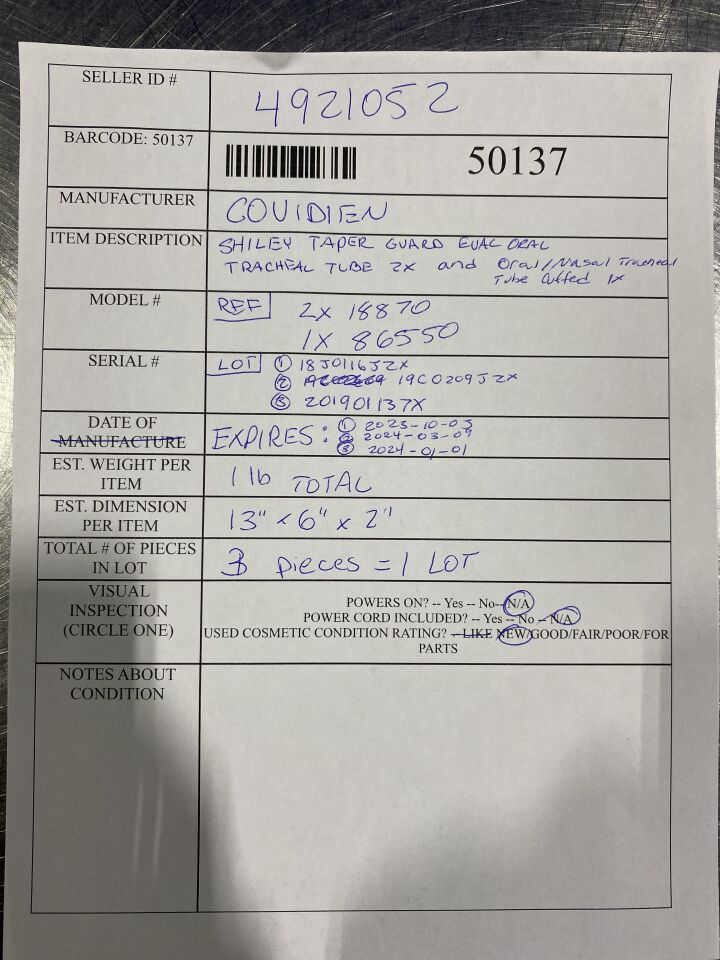 SELLER ID #
4921052
BARCODE: 50137
50137
MANUFACTURER
COVIDIEN
ITEM DESCRIPTION
SHILEY TAPER GUARD EVAC ORAL
TRACHEAL TUBE 2X and Oral/Nasal Tracheal
Tube Cuffed 1x
MODEL #
REF 2X 18870
1X 86550
SERIAL #
LOT ① 18J0116JZX
② 19C0209JZX
③ 201901137X
DATE OF
MANUFACTURE
EXPIRES: ① 2023-10-03
② 2024-03-09
③ 2024-01-01
EST. WEIGHT PER
ITEM
1 lb TOTAL
EST. DIMENSION
PER ITEM
13" x 6" x 2"
TOTAL # OF PIECES
IN LOT
3 pieces = 1 LOT
VISUAL
INSPECTION
(CIRCLE ONE)
POWERS ON? -- Yes -- No-- N/A
POWER CORD INCLUDED? -- Yes -- No -- N/A
USED COSMETIC CONDITION RATING? -- LIKE NEW/GOOD/FAIR/POOR/FOR
PARTS
NOTES ABOUT
CONDITION